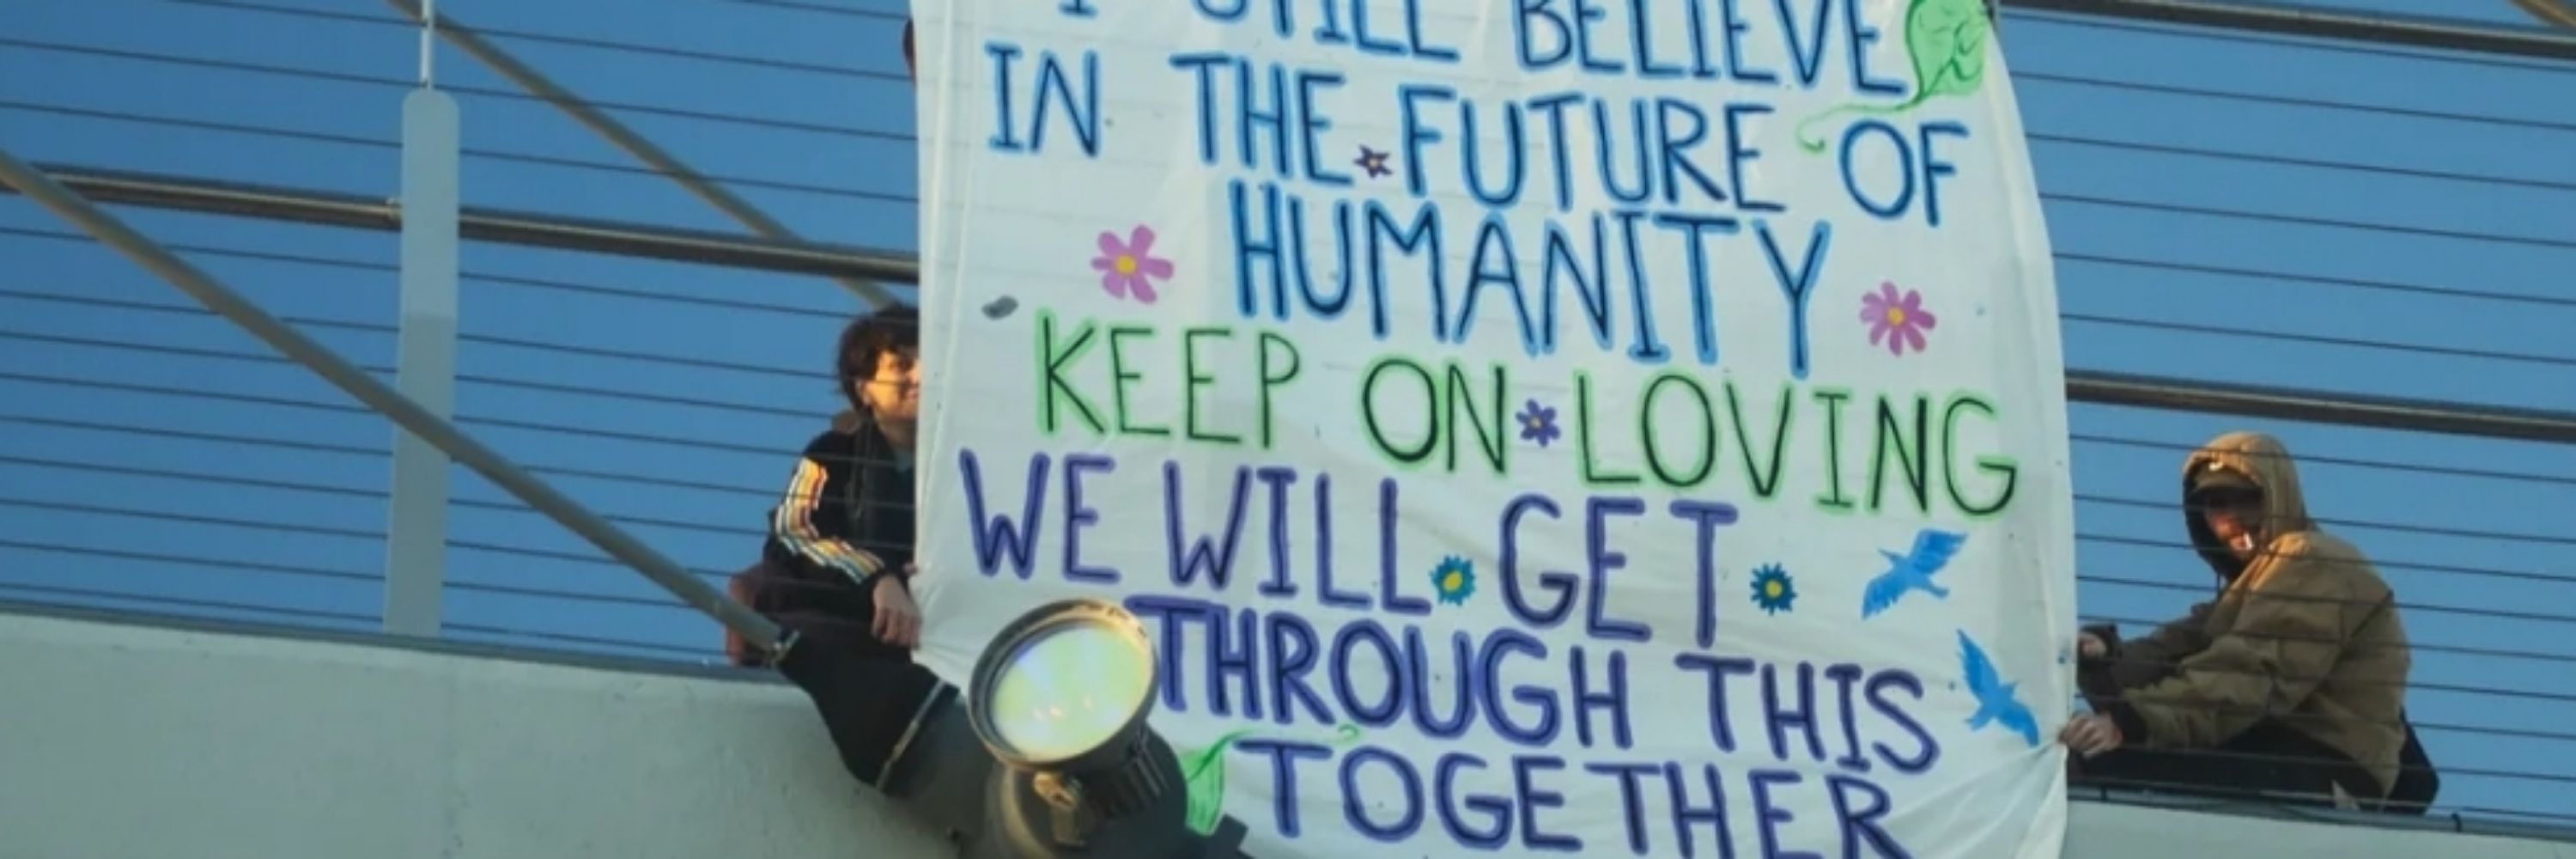 I STILL BELIEVE
IN THE FUTURE OF
HUMANITY
KEEP ON LOVING
WE WILL GET
THROUGH THIS
TOGETHER